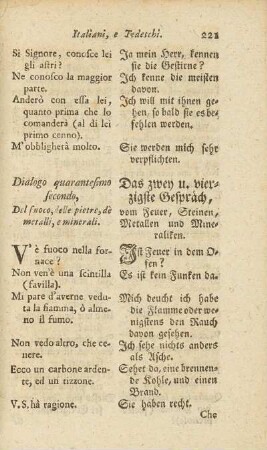 Italiani, e Tedeschi. 221
Sì Signore, conosce lei
gli astri?
Ne conosco la maggior
parte.
Anderò con essa lei,
quanto prima che lo
comanderà (al di lei
primo cenno).
M'obbligherà molto.
Ja mein Herr, kennen
sie die Gestirne?
Ich kenne die meisten
davon.
Ich will mit ihnen ge-
hen, so bald sie es be-
fehlen werden.
Sie werden mich sehr
verpflichten.
Dialogo quarantesimo
secondo,
Del fuoco, delle pietre, de'
metalli, e minerali.
Das zwey u. vier-
zigste Gespräch,
vom Feuer, Steinen,
Metallen und Mine-
raliken.
V'è fuoco nella for-
nace?
Non ven'è una scintilla
(favilla).
Mi pare d'averne veduta
la fiamma, ò alme-
no il fumo.
Non vedo altro, che ce-
nere.
Ecco un carbone arden-
te, ed un tizzone.
V. S. hà ragione.
Ist Feuer in dem O-
fen?
Es ist kein Funken da.
Mich deucht ich habe
die Flamme oder we-
nigstens den Rauch
davon gesehen.
Ich sehe nichts anders
als Asche.
Sehet da, eine brennen-
de Kohle, und einen
Brand.
Sie haben recht.
Che